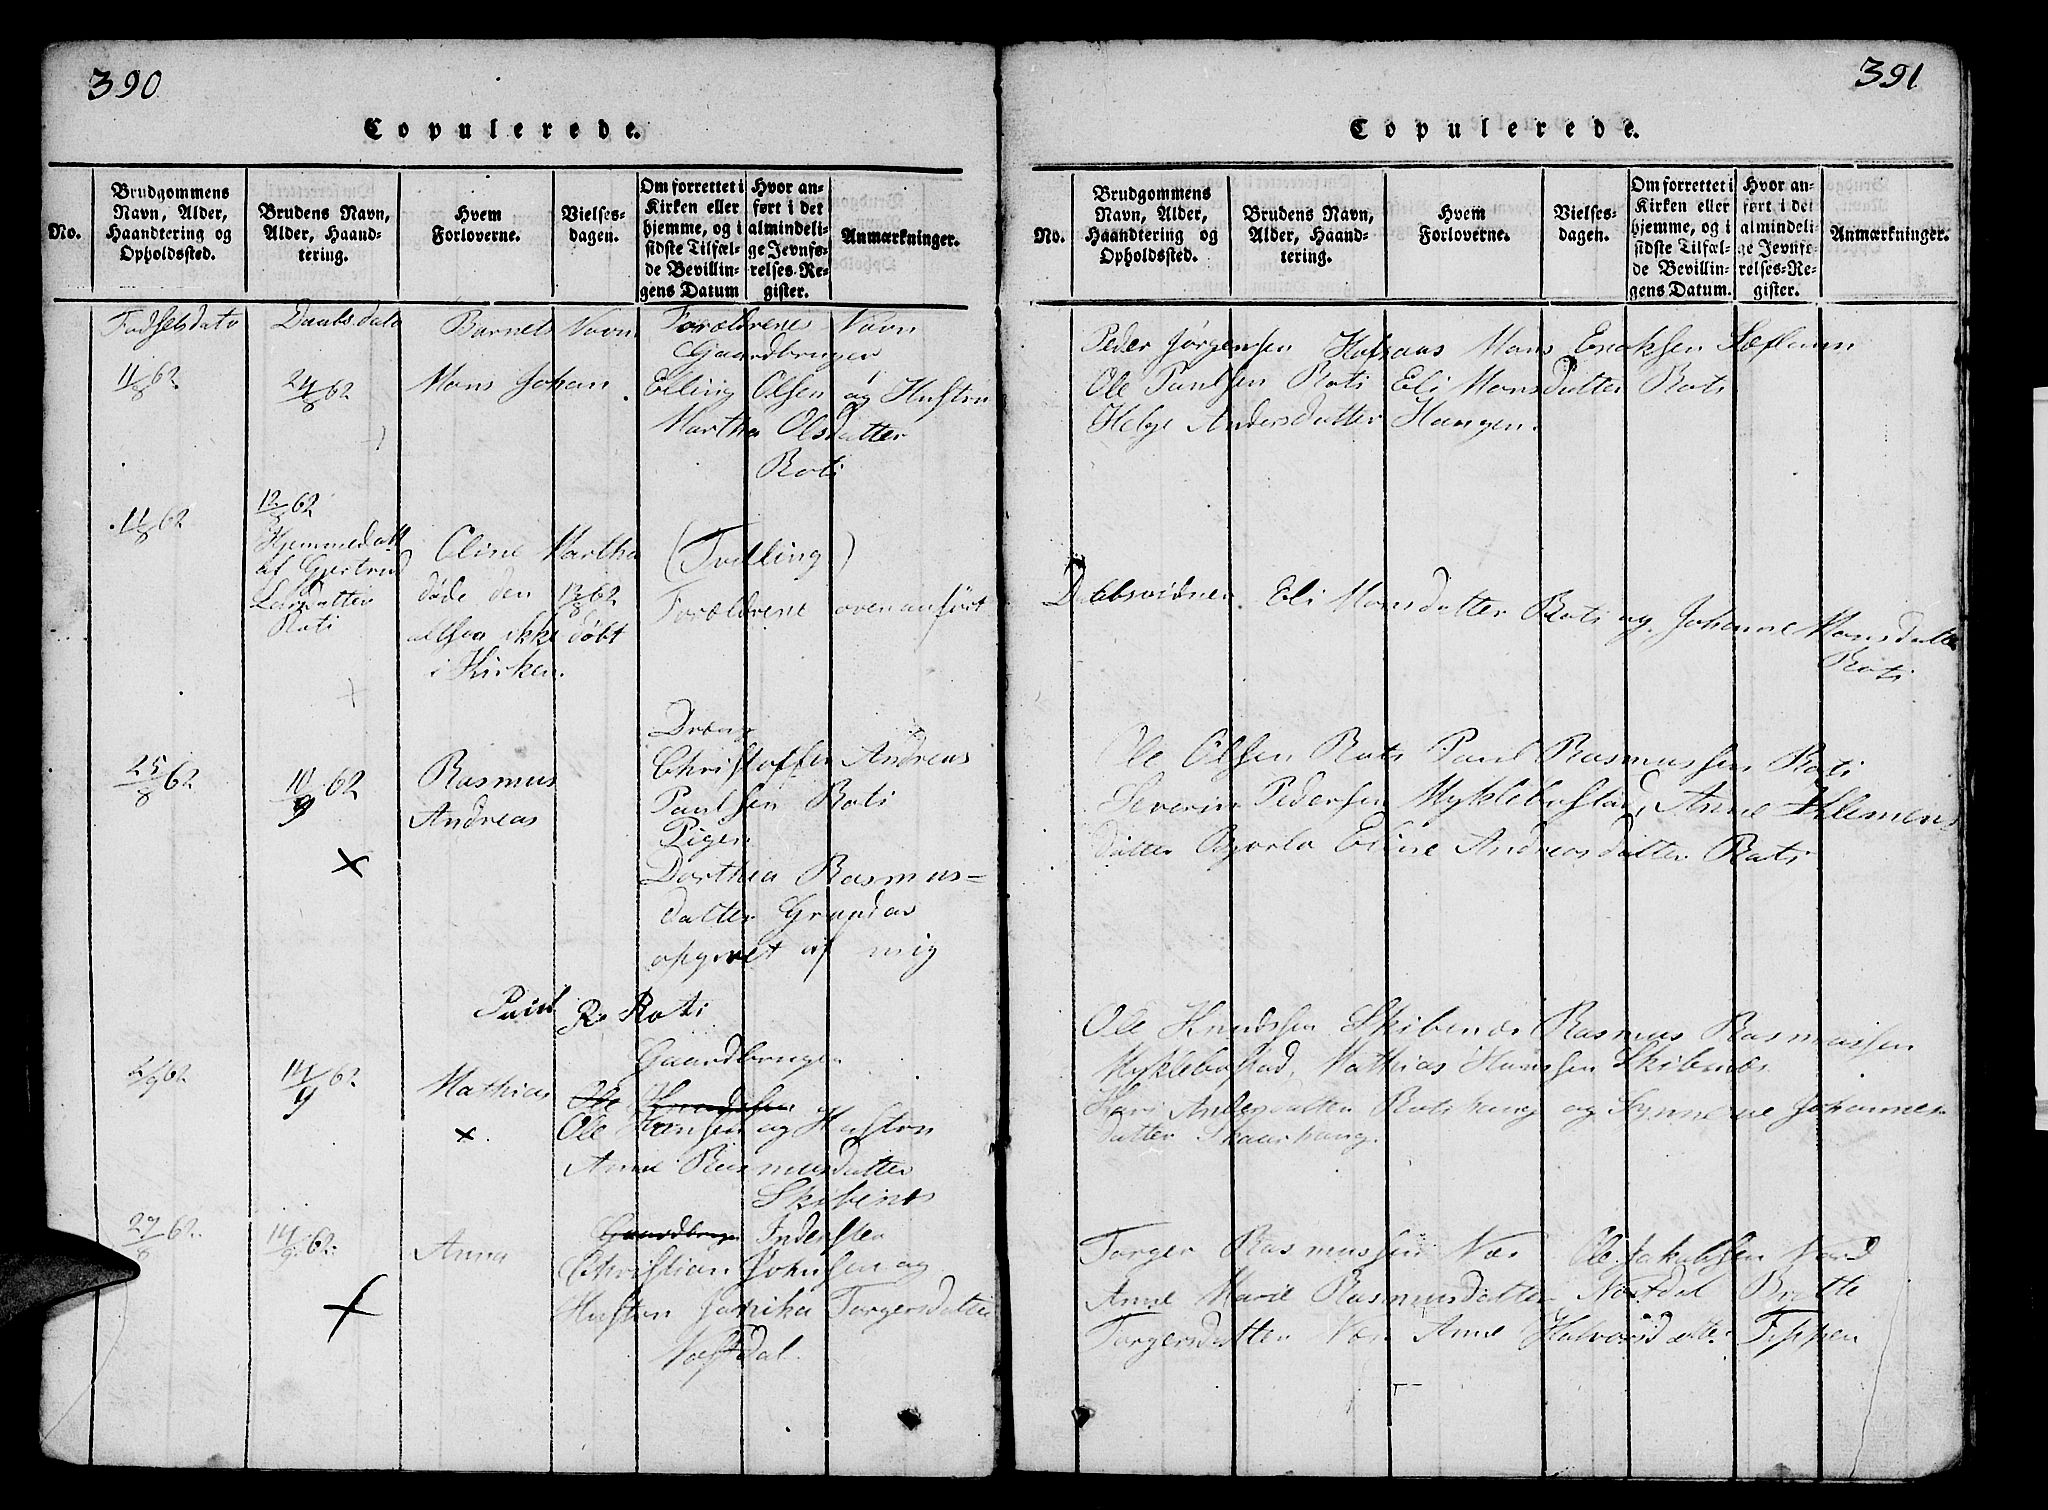 390
Copulerede.
No.
Brudgommens Navn, Alder, Haandtering og Opholdssted.
Brudens Navn, Alder, Haandtering.
Hvem Forloverne.
Vielsesdagen.
Om forrettet i Kirken eller hjemme, og i sidste Tilfælde Bevillingens Datum
Hvor anført i det almindelige Jevnførelses-Register.
Anmærkninger.
Fødselsdato Daabsdato Barnets Navn Forældrenes Navn
Gaardbruger
11/8 62 24/8 62 Mons Johan. Elling Olsen og Hustru
Martha Olsdatter
Roti
11/8 62 12/8 62
Hjemmedøbt
af Gjertrud
Larsdatter
Roti
Oline Martha
døde den 13/8 62
altsaa ikke døbt
i Kirken.
(Tvilling)
Forældrene ovenanført
25/8 62 10/9 62 Rasmus
Andreas
Dreng
Christoffer Andreas
Paulsen Roti
Pigen
Dorthea Rasmus=
datter Grundas
opgivet af mig
Paul R. Roti
Gaardbruger
2/9 62 14/9 62 Mathias Ole Knudsen
Ole Hansen og Hustru
Anne Rasmusdatter
Skibenes
27/8 62. 14/9 62. Anna
Gaardbruger Inderster
Christian Johnsen og
Hustru Janika Torgersdatter
Næstdal.
391
Copulerede.
No.
Brudgommens Navn, Alder, Haandtering og Opholdssted.
Brudens Navn, Alder, Haandtering.
Hvem Forloverne.
Vielsesdagen.
Om forrettet i Kirken eller hjemme, og i sidste Tilfælde Bevillingens Datum.
Hvor anført i det almindelige Jevnførelses-Register.
Anmærkninger.
Peder Jørgensen Mons Eriksen
Ole Paulsen Roti Eli Monsdatter Roti
Helge Andersdatter Haugen.
Daabsvidner. Eli Monsdatter Roti og Johanne Monsdatter
Roti
Ole Olsen Roti Paul Rasmussen Roti
Severin Pedersen Myklebostad, Anne Klemens
datter Eline Andreasdatter Roti
Ole Knudssen Skibenes Rasmus Rasmussen
Myklebostad, Mathias Hanssen Skibenes
Andersdatter Rotihaug og Synneve Johannes
datter Skaarhaug.
Torger Rasmussen Næs Ole Jakobsen
Anne Marie Rasmusdatter Brette
Torgersdatter Anne Halvorsdatter